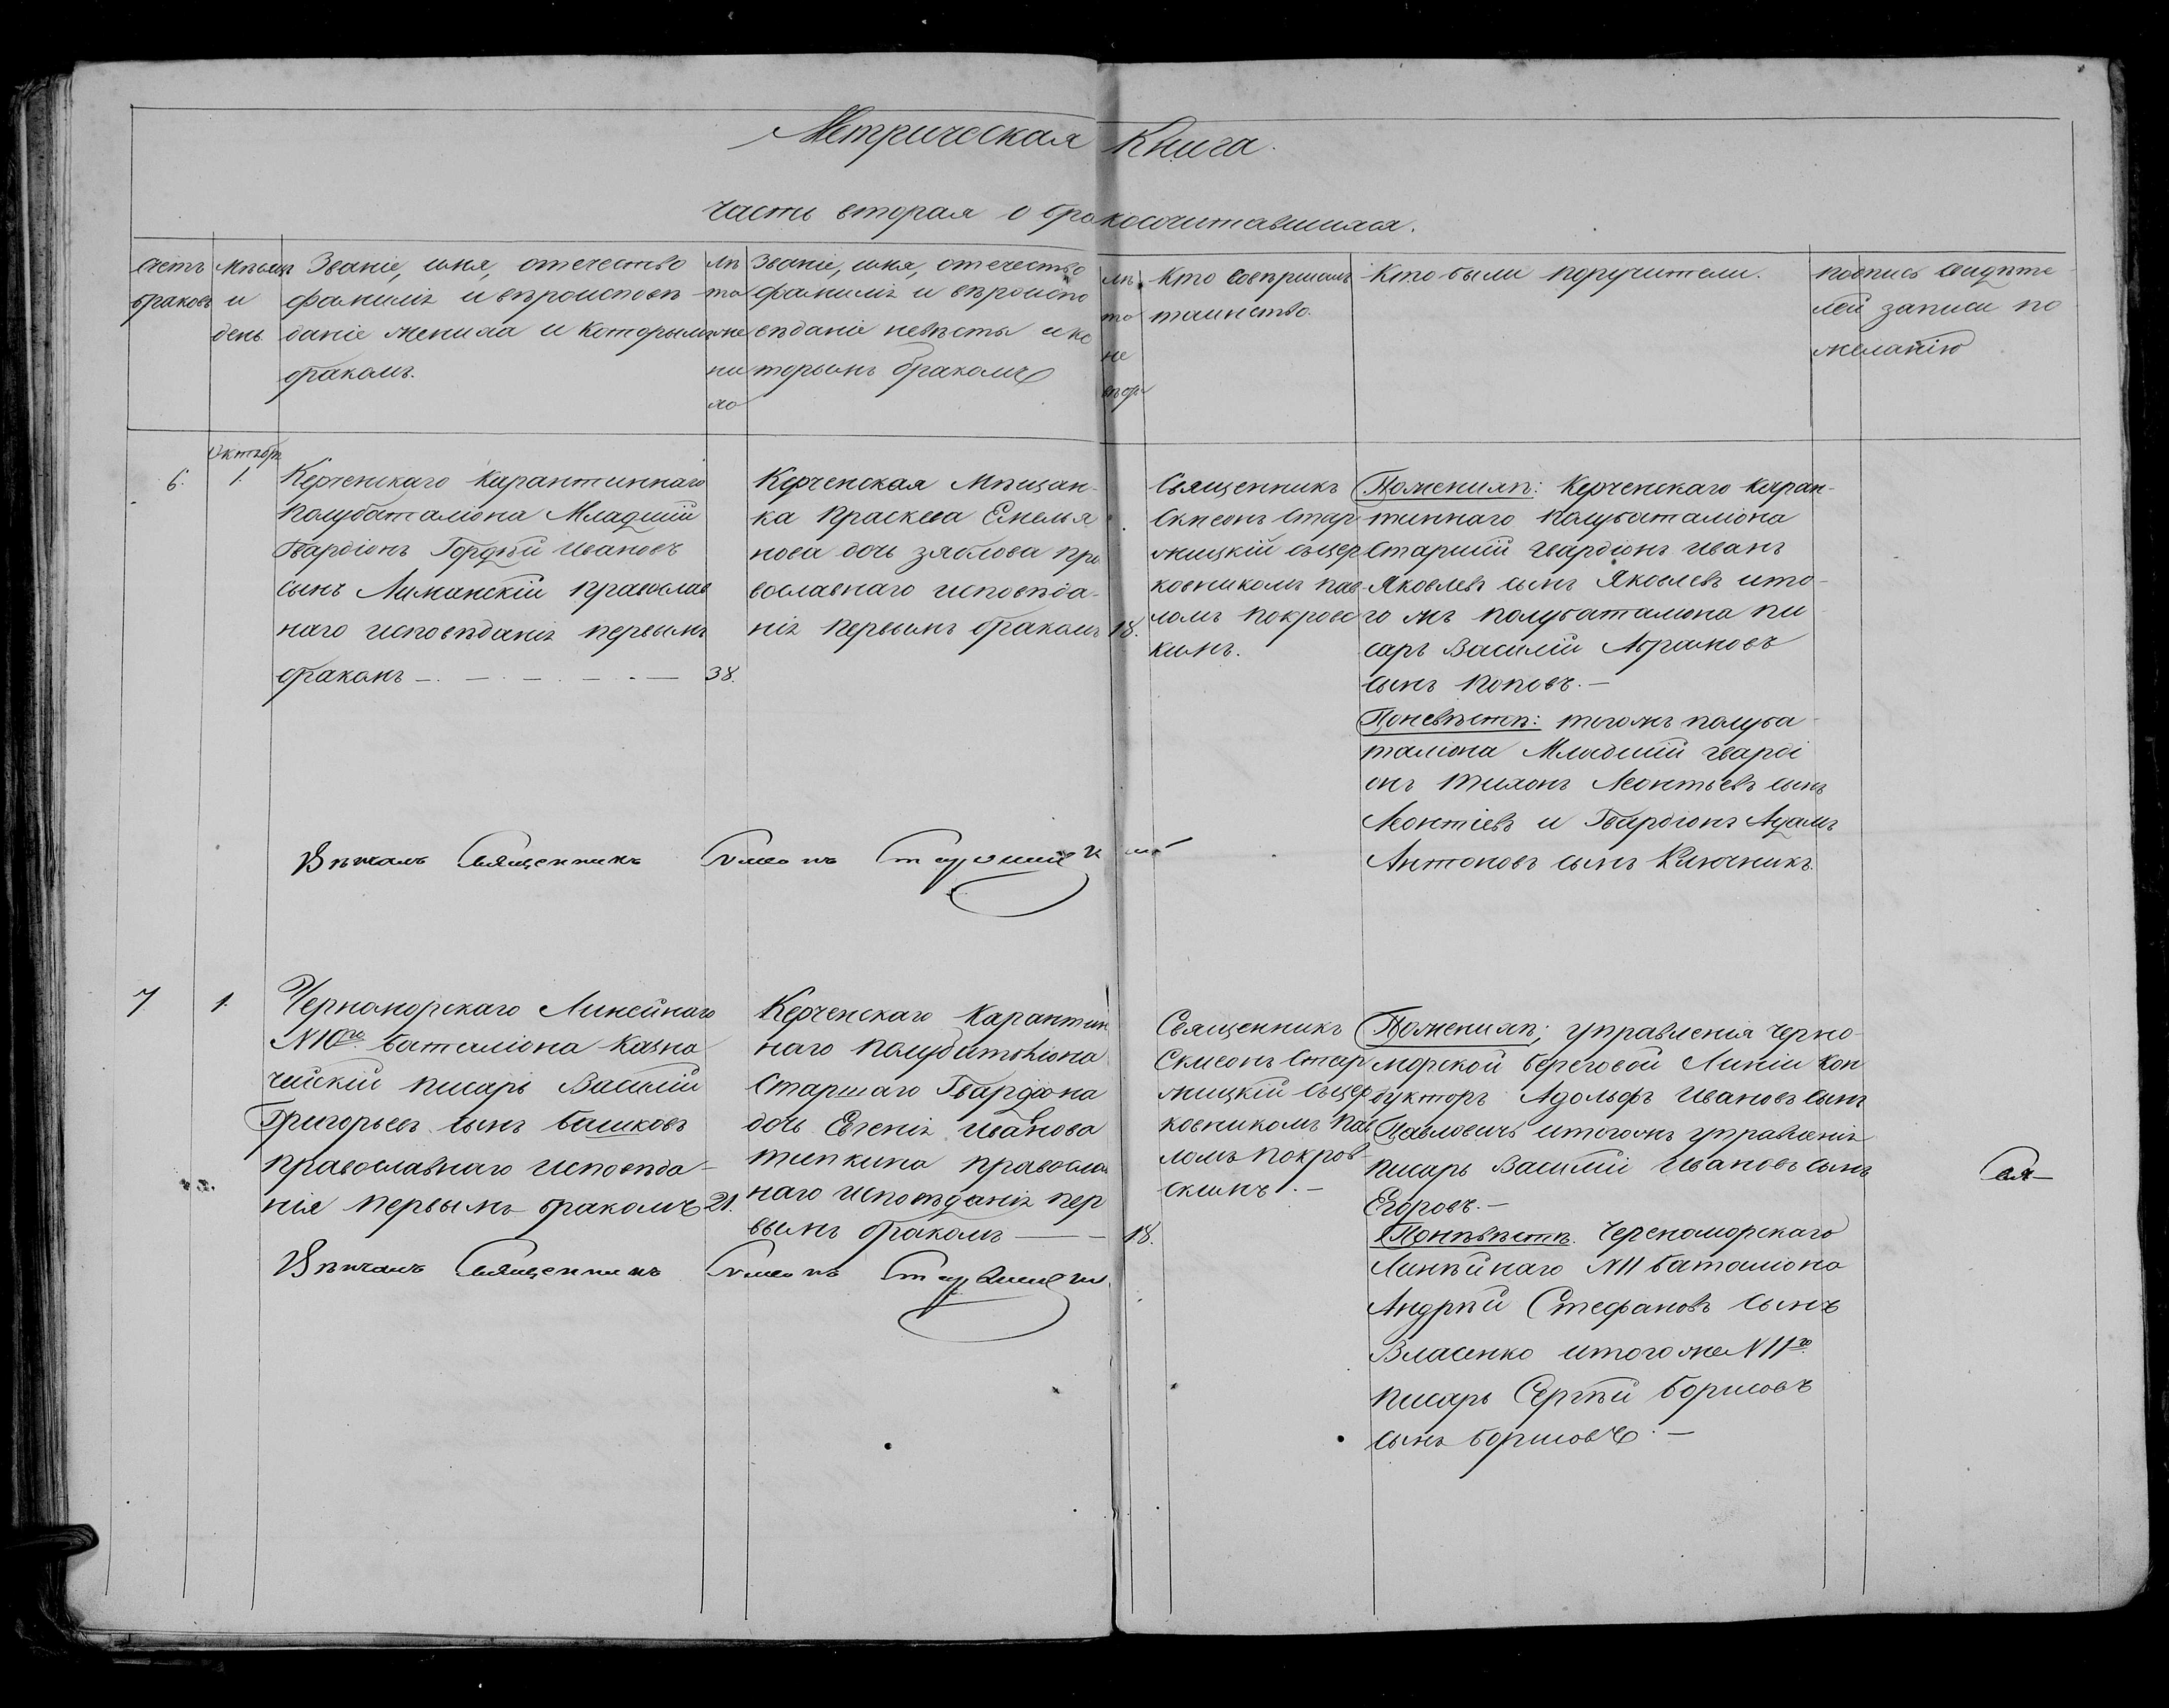 Метрическая Книга.
часть вторая о бракосочитавшихся.
Счетъ браковъ
Мѣсяцъ и день.
Званіе, имя, отечество
фамилія и вѣроисповѣ-
даніе жениха и которымъ
бракомъ.
лѣ
та
же
ни
ха
Званіе, имя, отечество
фамилія и вѣроиспо
вѣданіе невѣсты и ко
торымъ бракомъ
лѣ
та
не
вѣс
Кто совершалъ
таинство.
Кто были поручители.
подпись свидѣте
лей записи по
желанію
Октябрь
6.
1.
Керченскаго Карантиннаго
Полубаталіона Младшій
Гвардіонъ Гордѣй Ивановъ
сынъ Лиманскій православ
наго исповѣданія первымъ
бракомъ
38.
Керченская Мѣщан-
ка Праскева Емелья
нова дочь Зяблова пра
вославнаго исповѣда-
нія первымъ бракомъ
18.
Священникъ
Симеонъ Стар
жицкій съ цер
ковникомъ Пав
ломъ Покровс
кимъ.
По женихѣ: Керченскаго Каран-
тиннаго полубаталіона
Старшій гвардіонъ Иванъ
Яковлевъ сынъ Яковлевъ и то-
го жъ полубаталіона пи
сарь Василій Абрамовъ
сынъ Поповъ.—
По невѣстѣ: того жъ полуба-
таліона Младшій гварді
онъ Тихонъ Леонтьевъ сынъ
Леонтіевъ и Гвардіонъ Адамъ
Антоновъ сынъ Ключникъ.
Вѣнчалъ Священникъ Симеонъ Старжицкій
7
1.
Черноморскаго Линейнаго
N 10го баталіона Казна
чейскій писарь Василій
Григорьевъ сынъ Башковъ
православнаго исповѣда-
нія первымъ бракомъ
21.
Керченскаго Карантин
наго полубаталіона
Старшаго Гвардіона
дочь Евгенія Иванова
Типкина православ
наго исповѣданія пер
вымъ бракомъ
18.
Священникъ
Симеонъ Стар
жицкій съ цер
ковникомъ Пав
ломъ Покров-
скимъ.—
По женихѣ; Управленія Черно-
морской береговой Линіи Кон
дукторъ Адольфъ Ивановъ сынъ
Павловичъ и того жъ управленія
писарь Василій Ивановъ сынъ
Егоровъ.—
По невѣстѣ. Череноморскаго
Линѣйнаго N 11 баталіона
Андрѣй Стефановъ сынъ
Власенко и того же N 11го
писарь Сергѣй Борисовъ
сынъ Борисовъ.—
Вѣнчалъ Священникъ Симеонъ Старжицкій.
Свя—